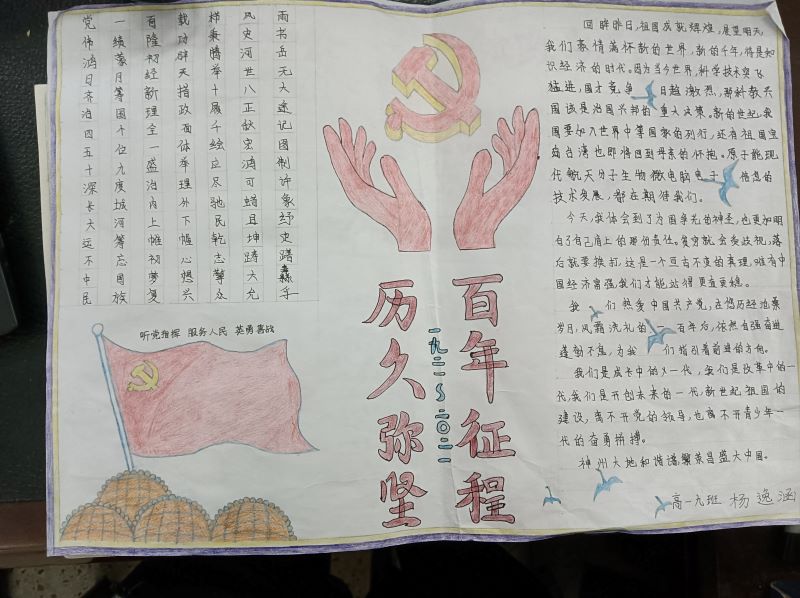 党一百载栉风雨
伟绩隆功秉史书
鸿蒙初辟腾河岳
日月经天举世无
齐等新指十八大
治国理政履正途
四个全面千秋记
五位一体绘宏图
十九盛举立鸿制
深度治理尽可许
长城内外驰蜡象
大河上下民且纾
远筹帷幄乾坤史
不忘初心志踌躇
中国梦想擎大纛
民族复兴众允孚
听党指挥 服务人民 英勇善战
百年征程
一九二一~二〇二一
历久弥坚
回眸昨日,祖国成就辉煌,展望明天,
我们豪情满怀新的世界,新的千年,将是知
识经济的时代。因为当今世界,科学技术突飞
猛进,国才竞争日趋激烈,那科教兴
国该是治国兴邦的重大决策。新的世纪,我
国要加入世界中等国家的列行,还有祖国宝
岛台湾也即将回到母亲的怀抱。原子能,现
代航天分子生物微电脑电子信息的
技术发展,都在期待我们。
今天,我体会到了为国争光的神圣,也更加明
白了自己肩上的那份责任。贫穷就会受歧视,落
后就要挨打,这是一个亘古不变的真理,唯有中
国经济富强我们才能站得更直更稳。
我们热爱中国共产党,在您历经沧桑
岁月,风霜洗礼的百年后,依然自强奋进
蓬勃不焦,为我们指引着前进的方向。
我们是成长中的一代,我们是改革中的一
代,我们是开创未来的一代,新世纪祖国的
建设,离不开党的领导,也离不开青少年一
代的奋勇拼搏。
神州大地和谐谱繁荣昌盛大中国。
高一九班 杨逸涵